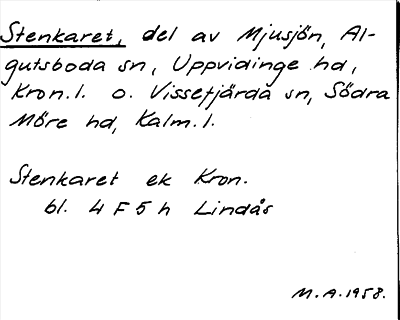 Stenkaret, del av Mjusjön, Al-
gutsboda sn, Uppvidinge hd,
Kron.l. o. Vissefjärda sn, Södra
Möre hd, Kalm.l.
Stenkaret ek Kron.
bl. 4 F 5 h Lindås
M.A. 1958.